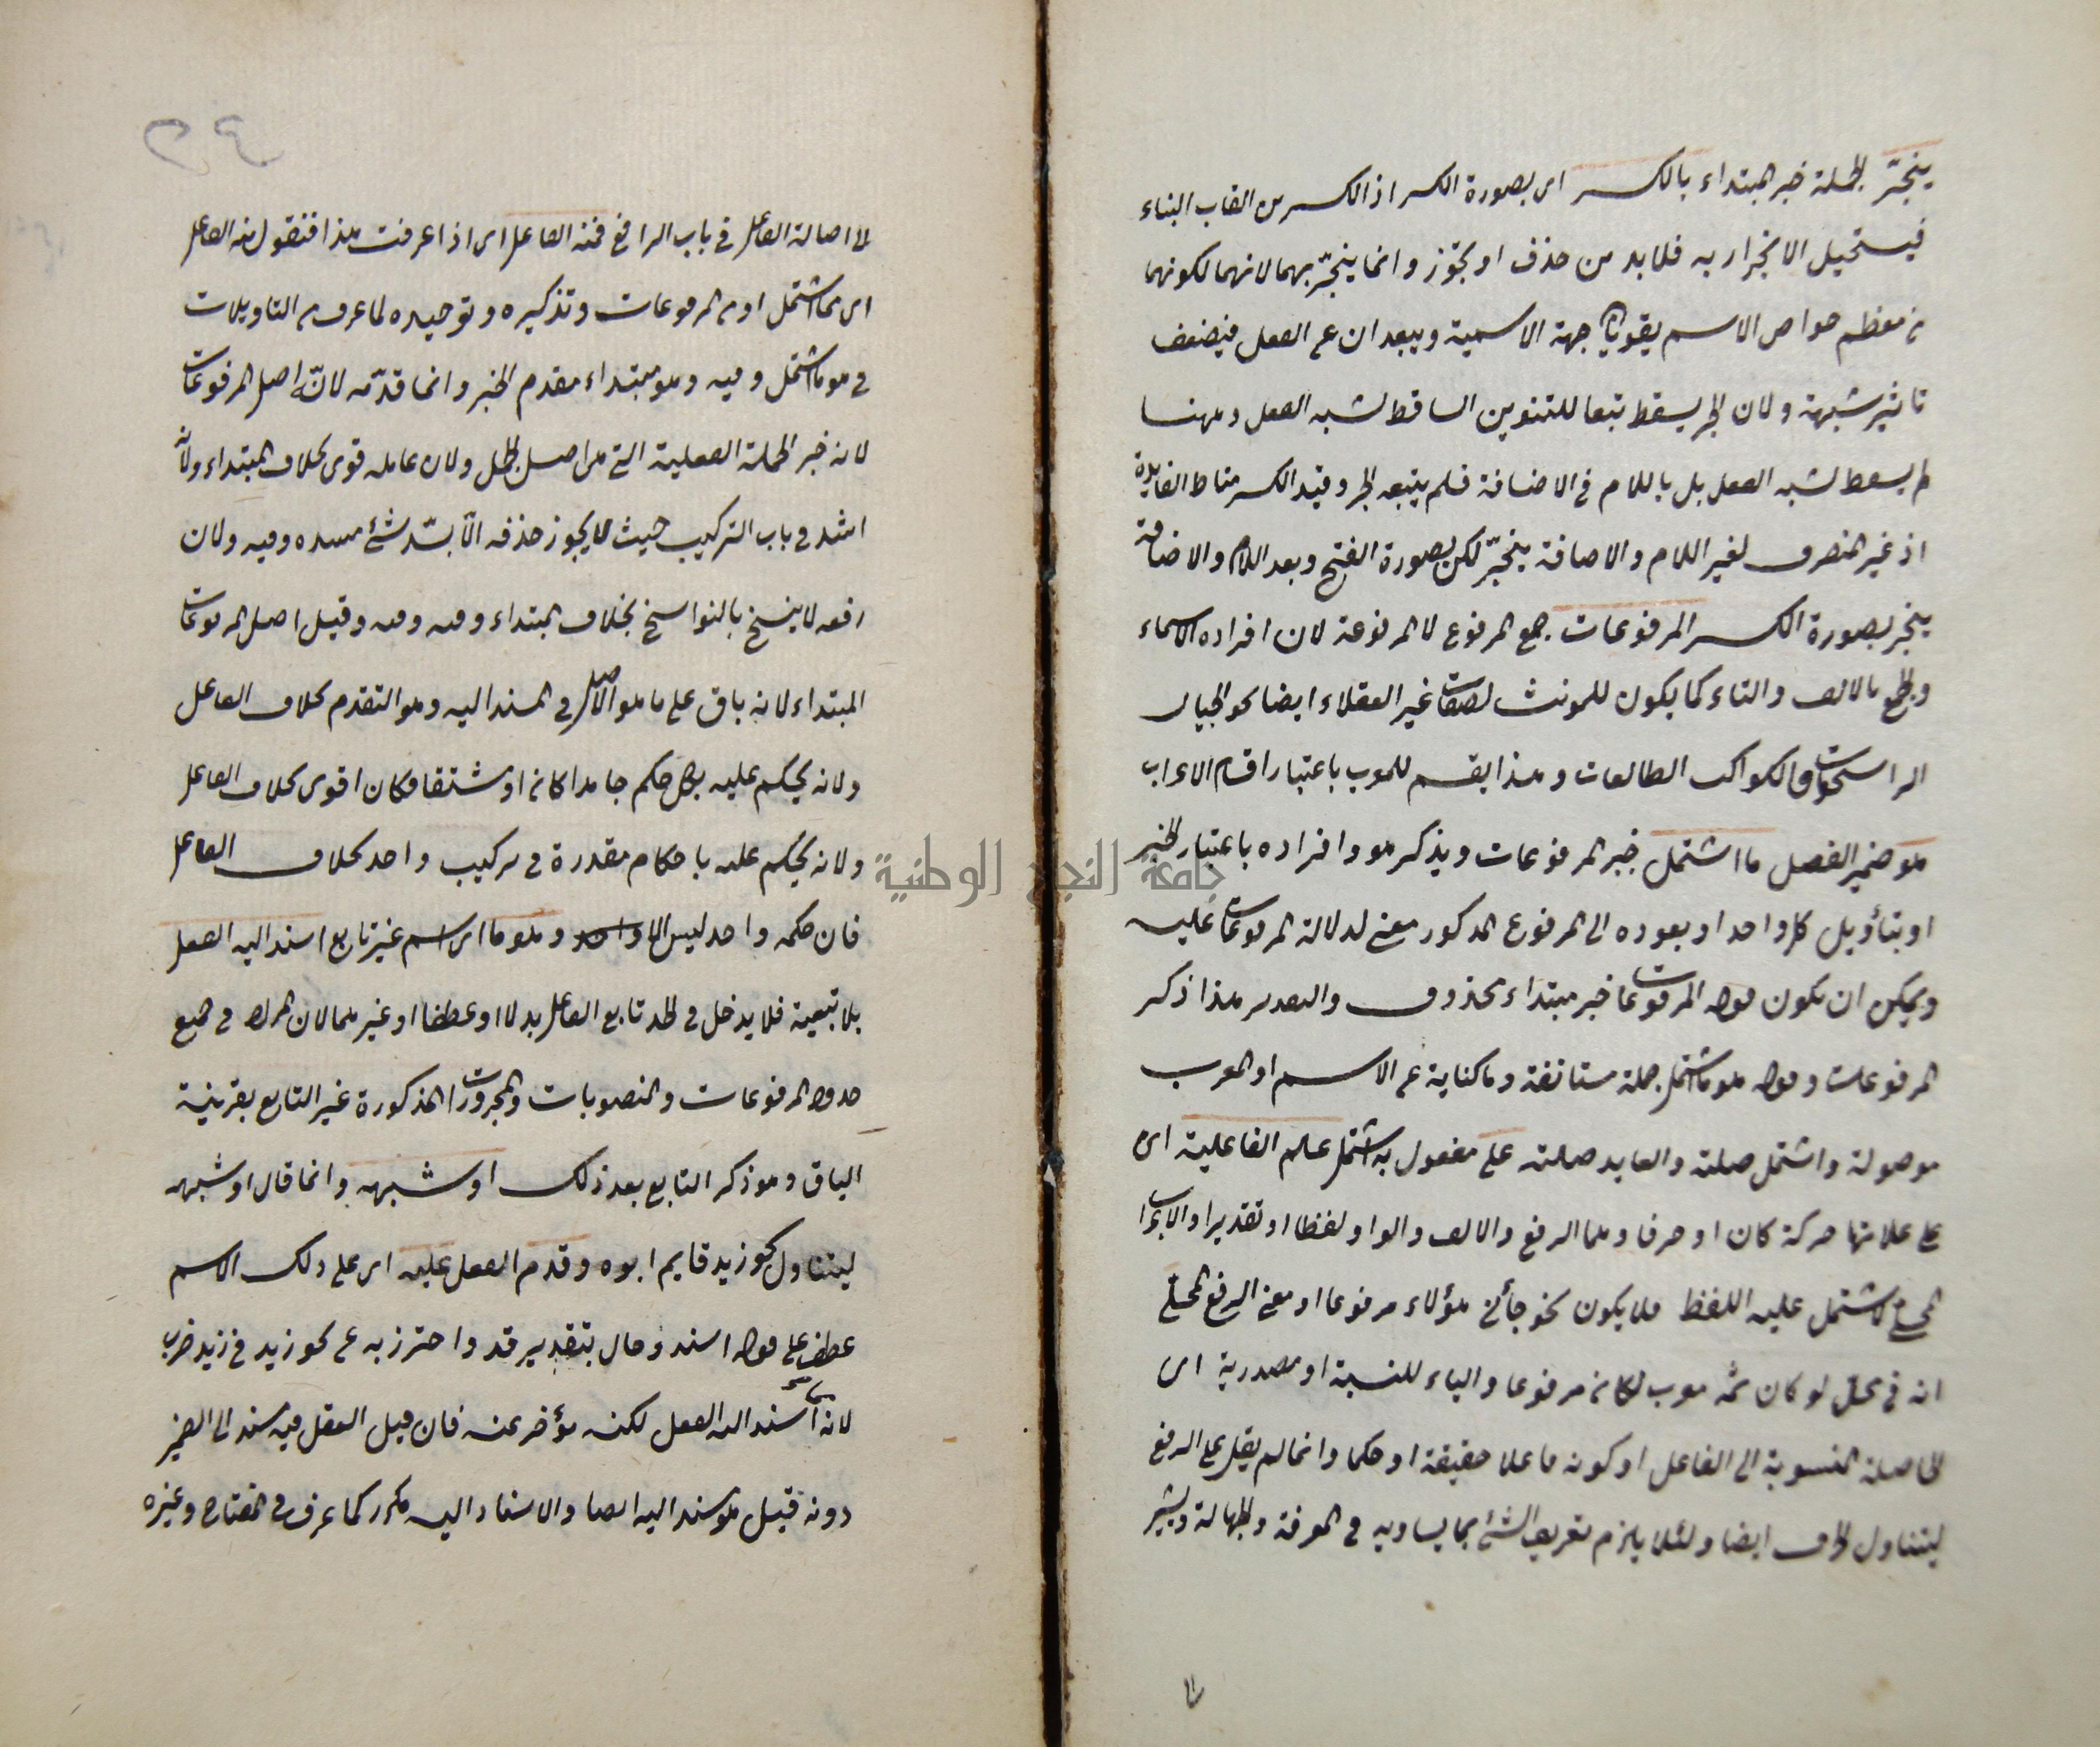 ينجرّ الجملة خبر المبتداء بالكسر اى بصورة الكسر اذ الكسر من القاب البناء
فيستحيل الانجرار به فلا بد من حذف او تجوّز وانما ينجرّ بهما لانهما لكونهما
من معظم خواص الاسم يقويان جهة الاسمية ويبعدان عن الفعل فيضعف
تاثير شبهته ولان الجر يسقط تبعا للتنوين الساقط لشبه الفعل وههنا
لم يسقط لشبه الفعل بل باللام فى الاضافة فلم يتبعه الجر وقيد الكسر مناط الفايدة
اذ غير المنصرف لغير اللام والاضافة ينجرّ لكن بصورة الفتح وبعد اللام والاضافة
ينجر بصورة الكسر المرفوعات جمع المرفوع لا المرفوعة لان افراده الاسماء
والجمع بالالف والتاء كما يكون للمونث لصفات غير العقلاء ايضا نحو الجبال
الراسخات والكواكب الطالعات وهذا يقسم للمعرب باعتبار اقسام الاعراب
هو ضمير الفصل ما اشتمل خبر المرفوعات ويذكر هو وافراده باعتبار الخبر
او بتأويل كل واحد او بعوده الى المرفوع المذكور معنى لدلالة المرفوعات عليه
ويمكن ان يكون قوله المرفوعات خبر مبتداء محذوف والتقدير هذا ذكر
المرفوعات وقوله هو ما اشتمل جملة مستانفة وما كناية عن الاسم او المعرب
موصولة واشتمل صلته والعايد صلته على مفعول به اشتمل علم الفاعلية اى
على علامتها حركة كان او حرفا وهما الرفع والالف والواو لفظا او تقديرا والاعراب
المحلى لا يشتمل عليه اللفظ فلا يكون نحو جأنى هؤلاء مرفوعا او معنى الرفع المحلى
انه فى محل لو كان ثمه معرب لكان مرفوعا والياء للنسبة او مصدرية اى
الحاصلة المنسوبة الى الفاعل او كونه فاعلا حقيقة او حكما وانما لم يقل على الرفع
ليتناول الحرف ايضا ولئلا يلزم تعريف الشئ بما يساويه فى المعرفة والجهالة وليشير
الى اصالة الفاعل فى باب الرافع فمنه الفاعل اى اذا عرفت هذا فنقول منه الفاعل
اى مما اشتمل او من المرفوعات وتذكيره وتوحيده لما عرف من التاويلات
فى هو ما اشتمل وفيه وهو مبتداء مقدم الخبر وانما قدّمه لانّه اصل المرفوعات
لانه خبر الجملة الفعلية التى هى اصل الجمل ولان عامله قوى بخلاف المبتداء ولانه
اشد فى باب التركيب حيث لا يجوز حذفه الّا بسّد شئ مسده وفيه ولان
رفعه لا ينسخ بالنواسخ بخلاف المبتداء وفيه وفيه وقيل اصل المرفوعات
المبتداء لانه باق على ما هو الاصل فى المسند اليه وهو التقدم بخلاف الفاعل
ولانه يحكم عليه بكل حكم جامدا كان او مشتقا فكان اقوى بخلاف الفاعل
ولانه يحكم عليه باحكام مقدرة فى تركيب واحد بخلاف الفاعل
فان حكمه واحد ليس الا وهو ما اى اسم غير تابع اسند اليه الفعل
بلا تبعية فلا يدخل فى الحد تابع الفاعل بدلا او عطفا او غيرهما لان المراد فى جميع
حدود المرفوعات والمنصوبات والمجرورات المذكورة غير التابع بقرينة
الباق وهو ذكر التابع بعد ذلك او شبهه وانما قال او شبهه
ليتناول نحو زيد قايم ابوه وقدم الفعل عليه اى على ذلك الاسم
عطف على قوله اسند وحال بتقدير قد واحترز به عن نحو زيد فى زيد ضرب
لانه اسند اليه الفعل لكنه مؤخر عنه فان قيل الفعل فيه مسند الى الضمير
دونه قيل هو مسند اليه ايضا والاسناد اليه مكرر كما عرف فى المفتاح وغيره
جامعة النجاح الوطنية